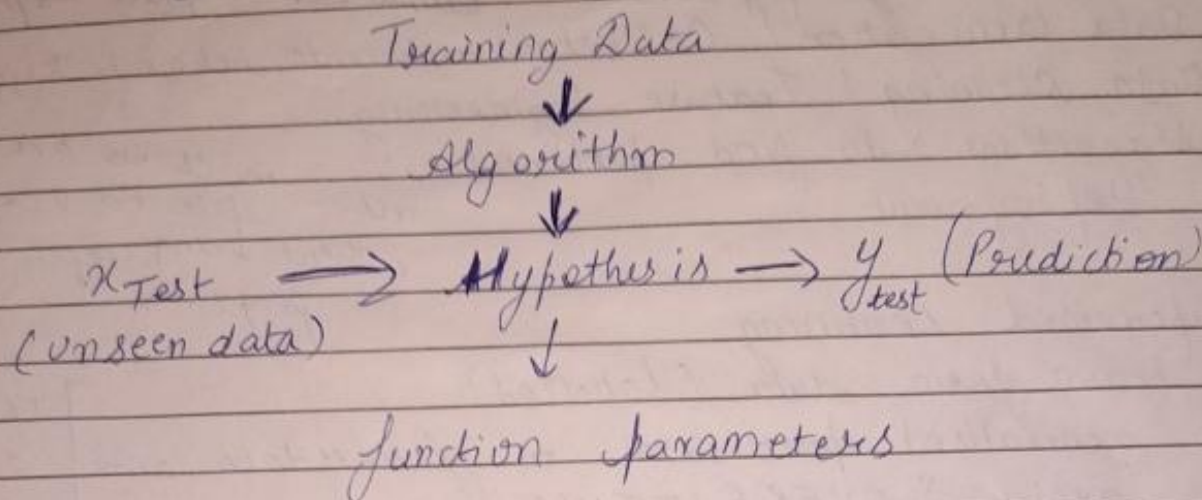 Training Data
↓
Algorithm
↓
x Test → Hypothesis → y test (Prediction)
(unseen data)
↓
function parameters